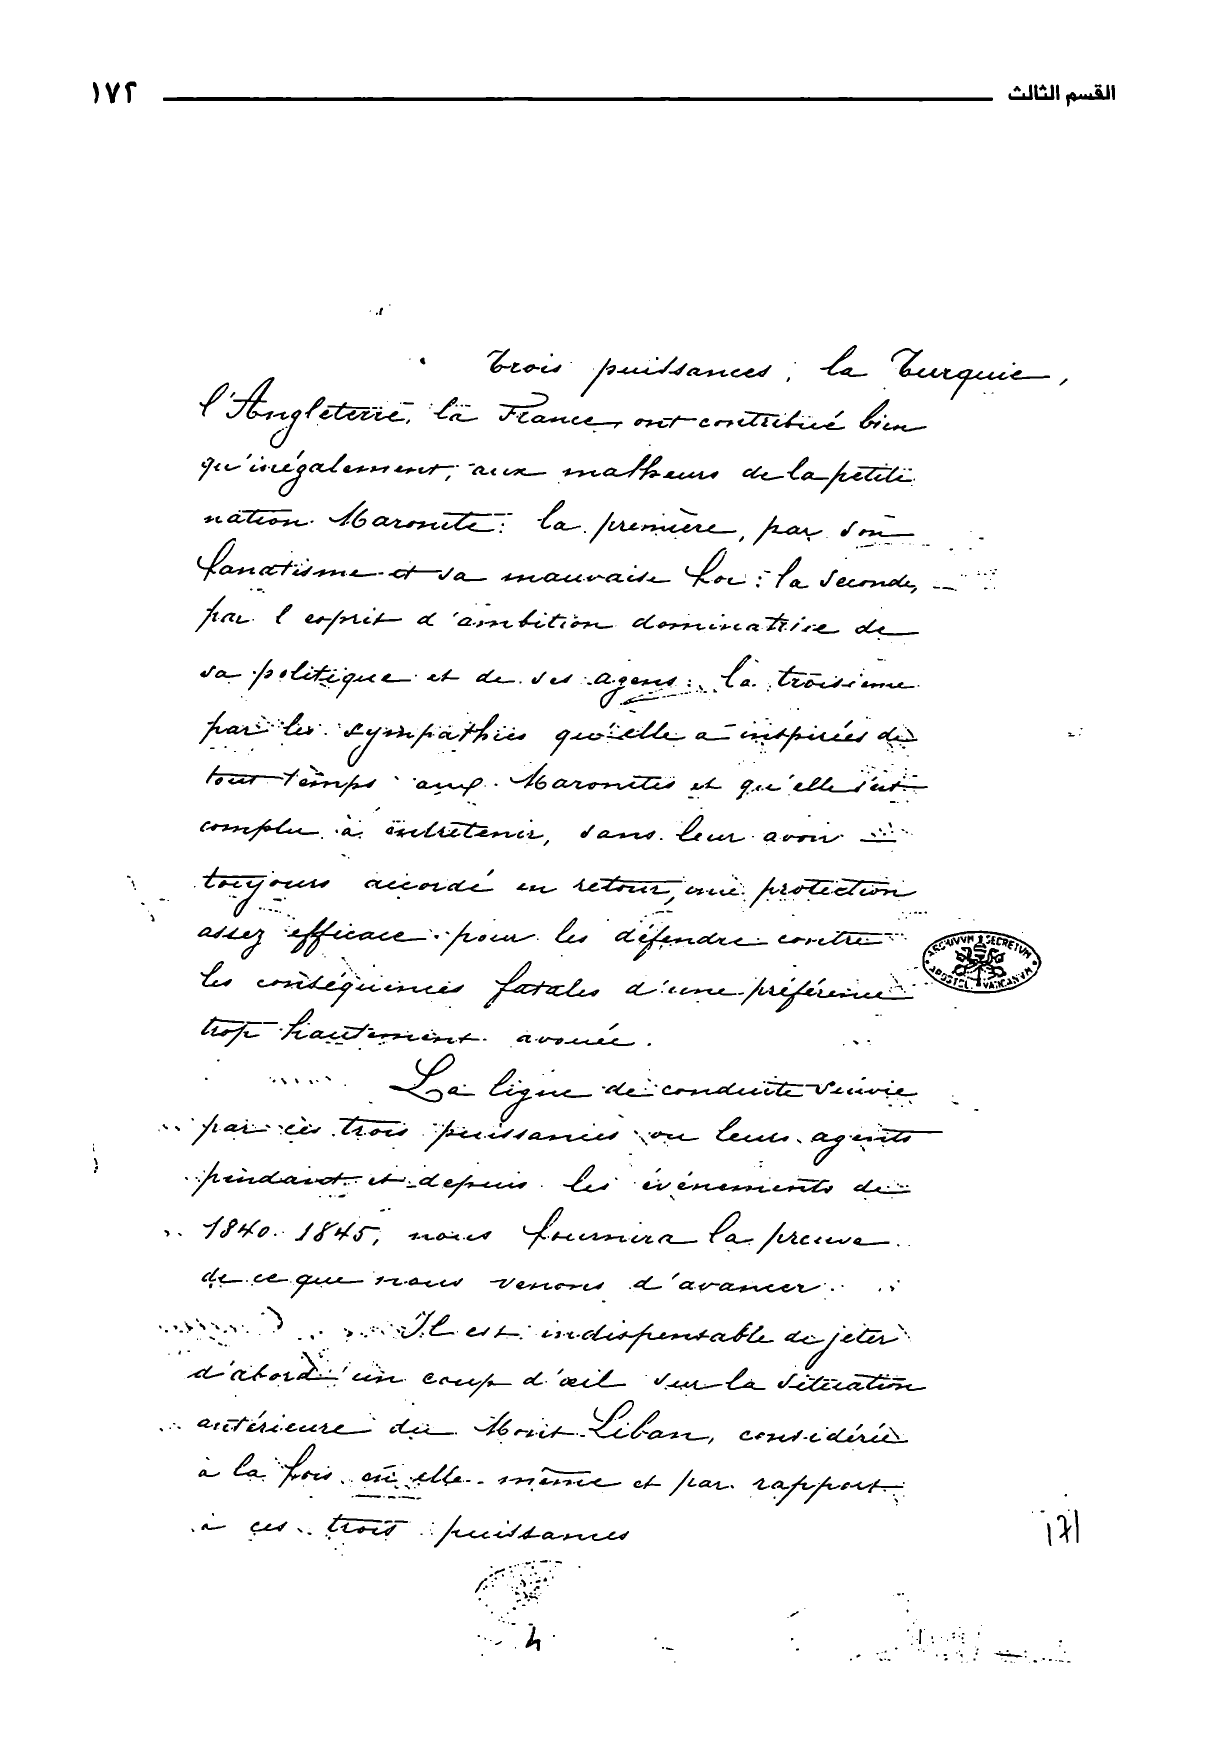 القسم الثالث ١٧٢
Trois puissances, la Turquie,
l'Angleterre, la France, ont contribué bien
qu'inégalement, aux malheurs de la petite
nation Maronite: la première, par son
fanatisme et sa mauvaise foi: la seconde,
par l'esprit d'ambition dominatrice de
sa politique et de ses agens: la troisième
par les sympathies qu'elle a inspirées de
tout temps aux Maronites et qu'elle s'est
complu à entretenir, sans leur avoir
toujours accordé en retour, une protection
assez efficace pour les défendre contre
les conséquences fatales d'une préférence
trop hautement avouée.
La ligne de conduite suivie
par ces trois puissances ou leurs agents
pendant et depuis les événements de
1840. 1845, nous fournira la preuve
de ce que nous venons d'avancer.
Il est indispensable de jeter
d'abord un coup d'œil sur la situation
antérieure du Mont Liban, considérée
à la fois en elle-même et par rapport
à ces trois puissances
ARCHIVVM SECRETVM
APOSTOL. VATICANVM
171
4